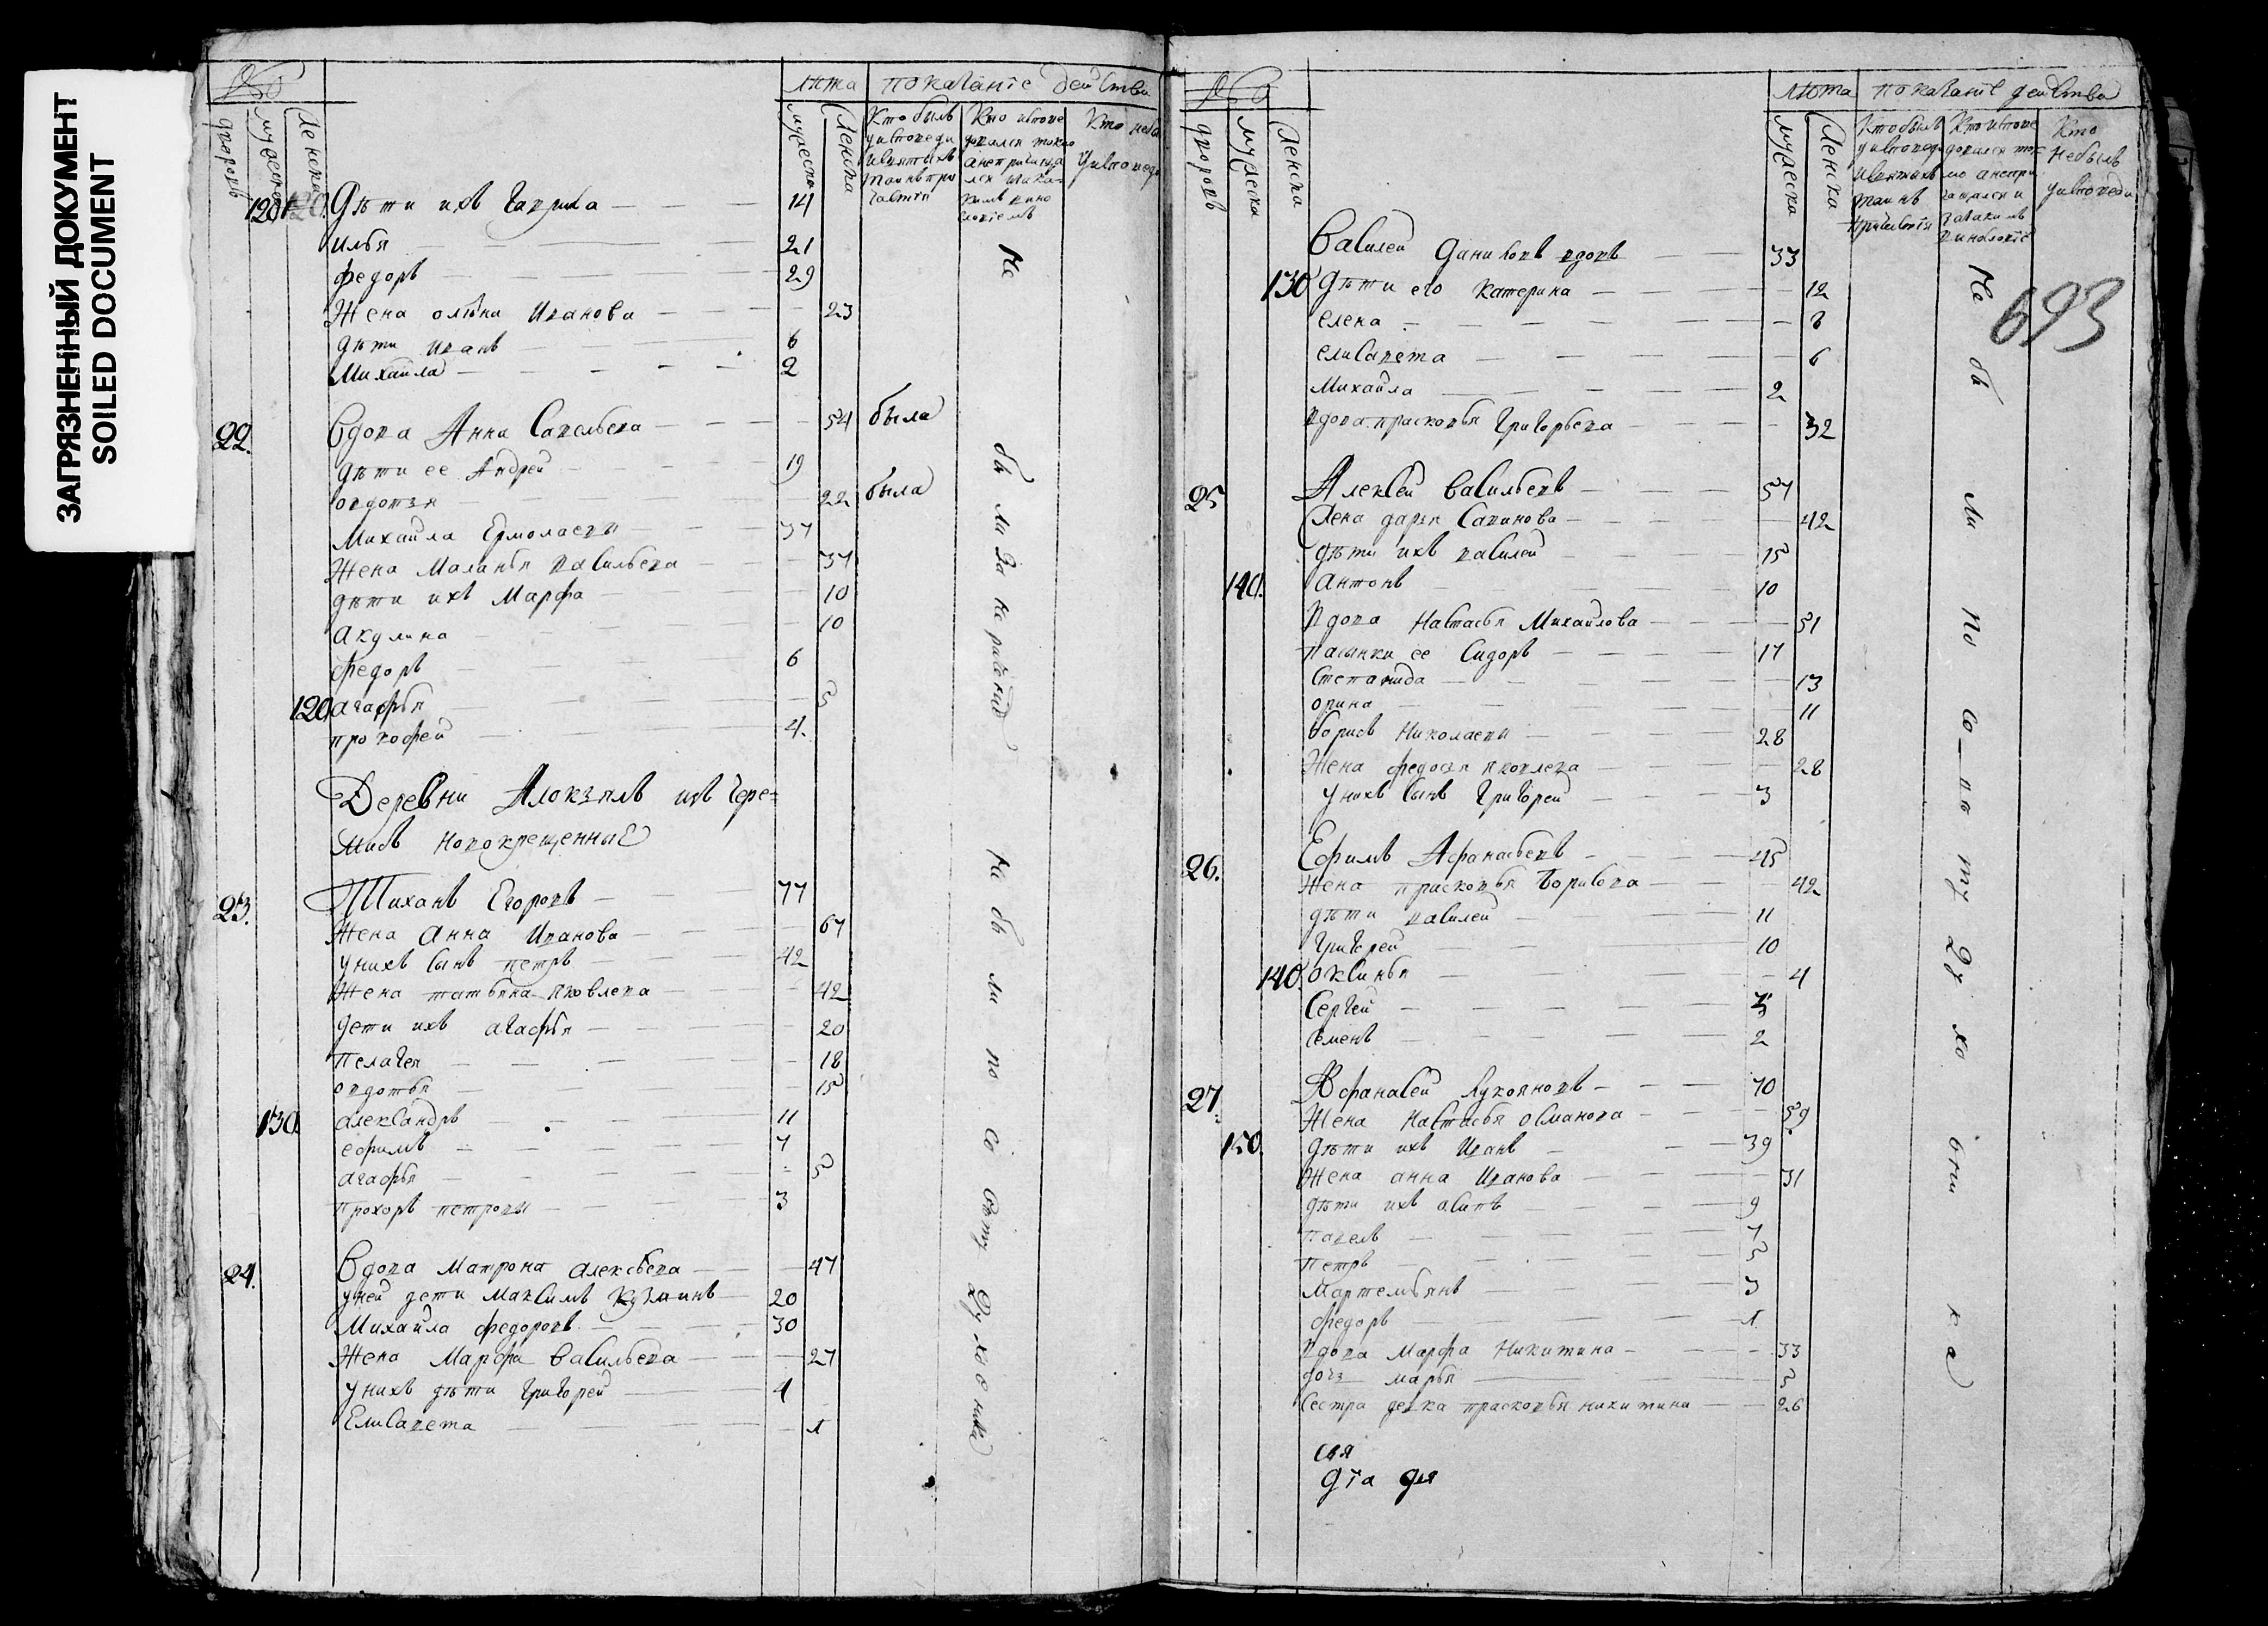 ЗАГРЯЗНЕННЫЙ ДОКУМЕНТ
SOILED DOCUMENT
лѣта показаніе действа
дворовъ мужеска женска мужеска женска
Кто былъ у исповеди и святыхъ таинъ причастія
Кто исповедался токмо а не причащался
Кто не былъ у исповеди
120 120 Дѣти ихъ Гаврила 14
Илья 21
Федоръ 29
Жена олѣна Иванова 23
дѣти Иванъ 6
Михайла 2
22. Вдова Анна Савельева 54 была
дѣти ее Андрей 19
овдотья 22 была
Михайла Ермолаевъ 37
Жена Маланья василььева 34
дѣти ихъ Марфа 10
Акулина 10
Федоръ 6
120 агафья 5
прокофей 4
Не были за нерачениемъ
Деревни Алокзялъ изъ Чере-
мисъ новокрещенные
23. Тиханъ Егоровъ 77
Жена Анна Иванова 67
у нихъ сынъ петръ 42
Жена татьяна яковлева 42
дети ихъ агафья 20
пелагея 18
овдотья 15
130 александръ 11
ефимъ 7
агафья 5
прохоръ петровы 3
24. Вдова Матрона алексѣева 47
у ней дети Максимъ Кузминъ 20
Михайла федоровъ 30
Жена Марфа васильева 27
у нихъ дѣти григорей 4
Елисавета 1
лѣта показаніе действа
дворовъ мужеска женска мужеска женска
Кто былъ у исповеди и святыхъ таинъ причастія
Кто исповедался токмо а не причащался и за какимъ винословіе
Кто не былъ у исповеди
693
Василей Даниловъ вдовъ 33
130 Дѣти его Катерина 12
елена 8
елисавета 6
Михайла 2
вдова прасковья григорьева 32
25 Алексей васильевъ 54
Жена дарья Савинова 42
дѣти ихъ василей 15
140. антонъ 10
Вдова настасья Михайлова 51
пасынки ее Сидоръ 17
степанида 13
орина 11
борисъ николаевъ 28
Жена федосья яковлева 28
у нихъ сынъ григорей 3
26. Ефимъ Афанасьевъ 45
Жена прасковья борисова 42
дѣти василей 11
григорей 10
140. оксинья 4
Сергей 3
семенъ 2
27. Афанасей Лукояновъ 70
Жена настасья османова 59
150. дѣти ихъ Иванъ 39
Жена анна Иванова 31
дѣти ихъ осипъ 9
павелъ 7
петръ 5
мартемьянъ 3
федоръ 1
вдова марфа Никитина 33
дочь марья 3
сестра девка прасковья никитина 26